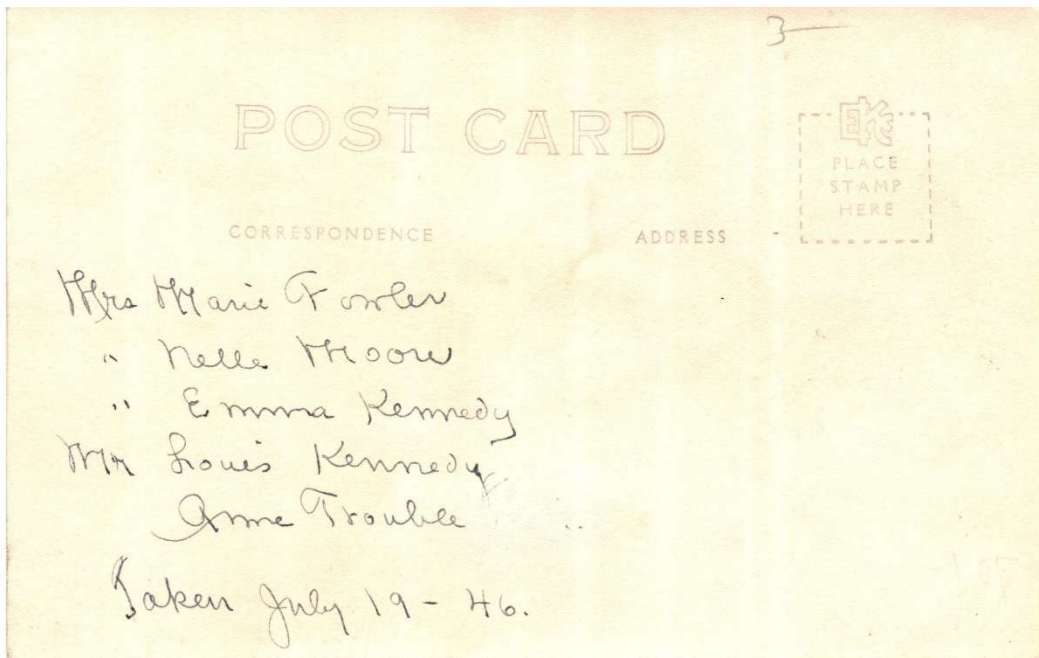 3—
POST CARD
EKC
PLACE
STAMP
HERE
CORRESPONDENCE
ADDRESS
Mrs Marie Fowler
" Nelle Moore
" Emma Kennedy
Mr Louis Kennedy
Anne Trouble
Taken July 19 - 46.